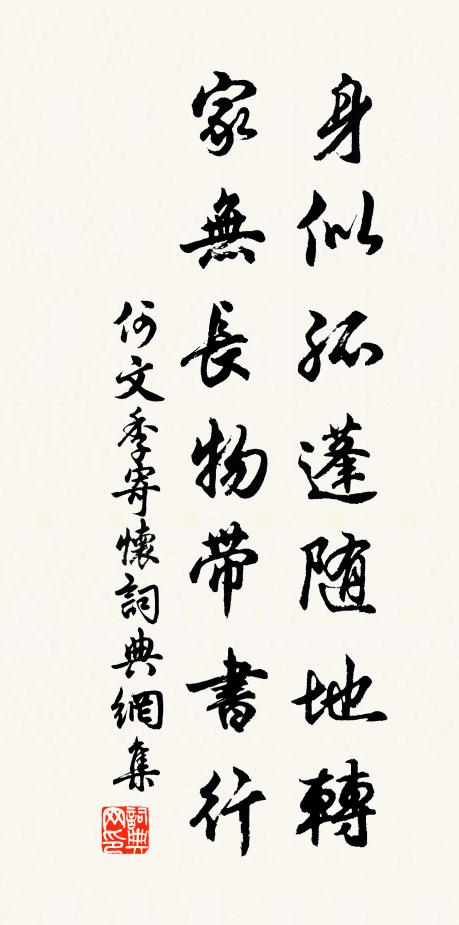 身似孤蓬随地轉
家無長物帶書行
何文季寄懷詞典網集
詞典网印